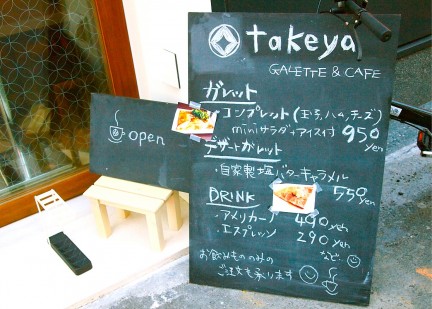 takeya
GALETTE & CAFE
ガレット
・コンプレット(玉子,ハム,チーズ)
miniサラダ+アイス付 950 yen
デザートガレット
・自家製塩バターキャラメル
550 yen
DRINK
・アメリカーノ 490 yen
・エスプレッソ 290 yen
など…
お飲みもののみの
ご注文も承ります
open